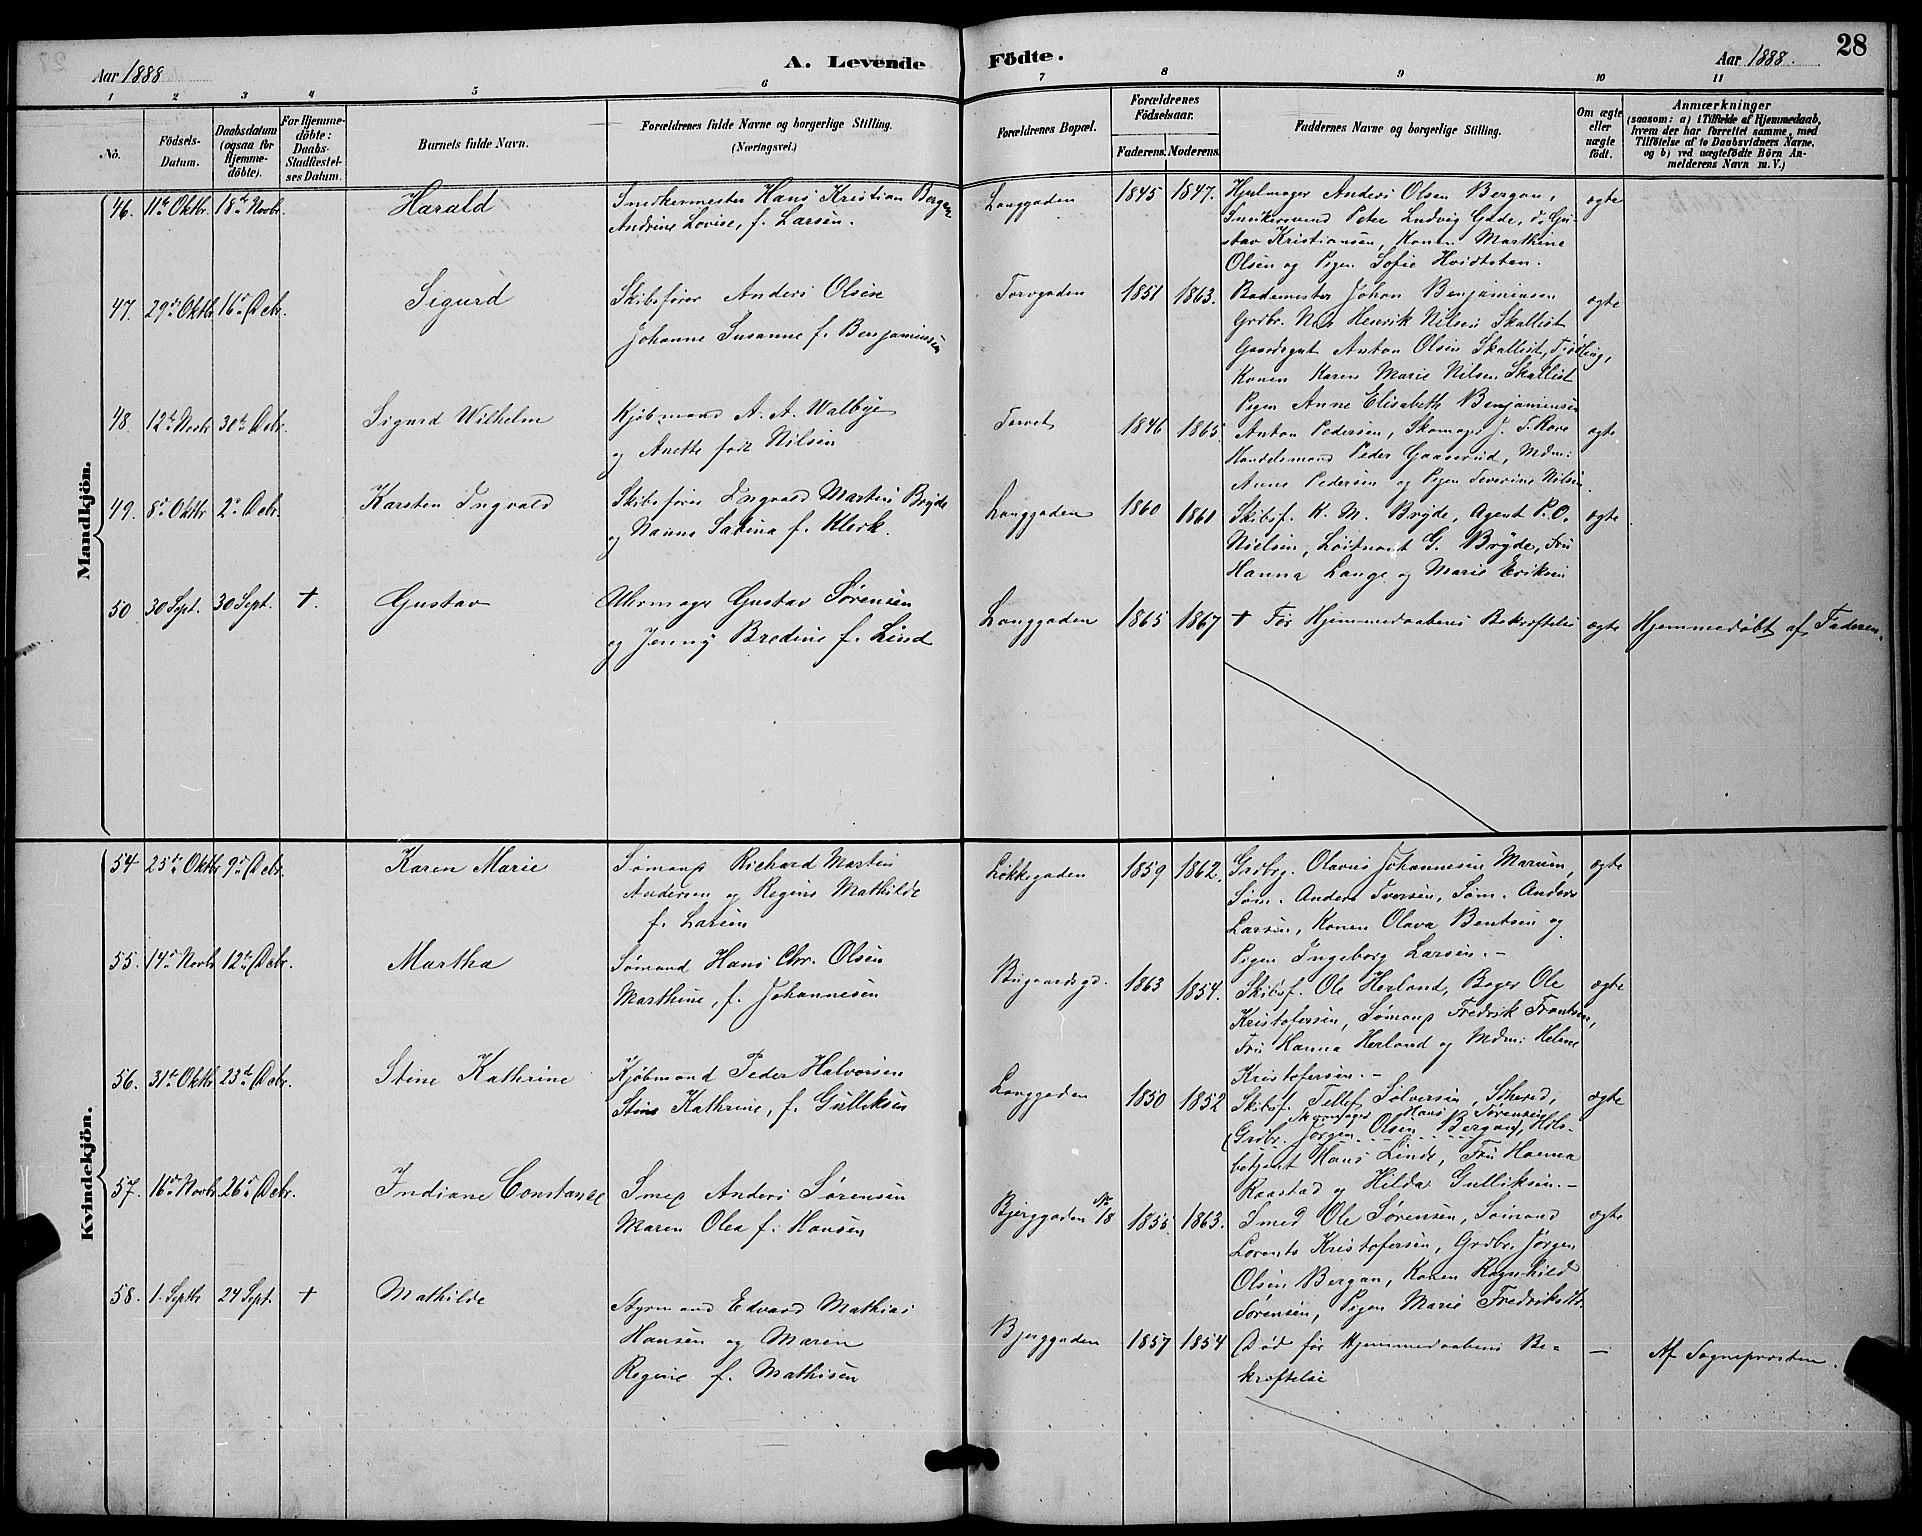 28
Aar 1888
A. Levende
Födte.
Aar 1888.
1 2 3 4 5 6 7 8 9 10 11
No.
Födsels-Datum.
Daabsdatum (ogsaa for Hjemmedöbte).
For Hjemmedöbte: Daabs-Stadfæstelses Datum.
Barnets fulde Navn.
Forældrenes fulde Navne og borgerlige Stilling.
(Næringsvei.)
Forældrenes Bopæl.
Forældrenes Födselsaar.
Faderens. Moderens.
Faddernes Navne og borgerlige Stilling.
Om ægte eller uægte födt.
Anmærkninger
(saasom: a) i Tilfælde af Hjemmedaab,
hvem der har forrettet samme, med
Tilföielse af to Daabsvidners Navne.
og b) ved uægtefödte Börn Anmelderens Navn m. V.)
Mandkjön.
46. 11te Oktbr. 18de Novbr. Harald
Smedkermester Hans Kristian Bergan
Andrine Lovise, f. Larsen.
Langgaden 1845 1847. ægte
Hjulmager Anders Olsen Bergan,
Snikersvend Peter Ludvig Gade, do Gu-
stav Kristiansen, Konen Marthine
Olsen og Pigen Sofie Hvidtsten.
47. 29de Oktbr 16de Debr. Sigurd
Skibsfører Anders Olsen
Johanne Susanne f. Benjaminsen
Torvgaden 1851 1863. ægte
Bademester Johan Benjaminsen
Grdbr. Nils Henrik Nilsen Skallist
Gaardsgut Anton Olsen Skallist, Tjølling,
Konen Karen Marie Nilsen Skallist
Pigen Anne Elisabeth Benjaminsen
48. 12te Novbr 30te Debr. Sigurd Wilhelm
Kjøbmand A. A. Walbye
og Anette født Nilsen
Torvet 1846 1865. ægte
Anton Pedersen, Skomager J. F. Rove
Handelsmand Peder Gaaserud, Mdm:
Anne Pedersen og Pigen Severine Nilsen.
49. 8de Oktbr 2den Debr. Karsten Ingvald
Skibsfører Ingvald Martin Bryde
og Nanna Sabina f. Klerk.
Langgaden 1860 1861 ægte
Skibsf. K. M. Bryde, Agent P. O.
Nielsen, Løitnant G. Bryde, Fru
Hanna Lange og Marie Eriksen
50 30 Sept. 30 Sept. +. Gustav
Uhrmager Gustav Sørensen
og Jenny Bredine f. Lind
Langgaden 1865 1867 + Før Hjemmedaabens Bekræftelse ægte Hjemmedøbt af Faderen.
Kvindekjön.
54 25de Oktbr 9de Debr. Karen Marie
Sømand Richard Martin
Andersen og Regine Mathilde
f. Larsen
Løkkegaden 1859 1862. ægte
Grdbrg. Olavus Johannesen Marum,
Søm. Anders Iversen, Søm. Anders
Larsen, Konen Olava Bentsen og
Pigen Ingeborg Larsen.-
55. 14de Novbr 12te Debr. Martha
Sømand Hans Chr. Olsen
Marthine, f. Johannesen
Bugaardsgd. 1863 1854. ægte
Skibsf. Ole Herland, Bager Ole
Kristofersen, Sømand Fredrik Frantsen,
Fru Hanna Herland og Mdm: Helene
Kristofersen.-
56. 31te Oktbr 23de Debr. Stine Kathrine
Kjøbmand Peder Halvorsen
Stine Kathrine, f. Gulliksen
Langgaden 1850 1852 ægte
Skibsf. Tellef Solversen,
Skomager Hans Sørensen
(Grdbr. Jørgen Olsen Bergan),
Hans Linde, Fru Hanna
Raastad og Hilda Gulliksen.-
57. 16de Novbr 26de Debr. Indiane Constance
Smed Anders Sørensen
Maren Olea f. Hansen
Bjerggaden No 18 1855. 1863. ægte
Smed Ole Sørensen, Sømand
Lorents Kristofersen, Grdbr. Jørgen
Olsen Bergan, Konen Ragnhild
Sørensen, Pigen Marie Fredriksen.
58. 1. Septbr 24 Sept. + Mathilde
Styrmand Edvard Mathias
Hansen og Maren
Regine f. Mathisen
Bjerggaden 1857 1854 Død før Hjemmedaabens Be-
kræftelse — Af Sogneprosten.